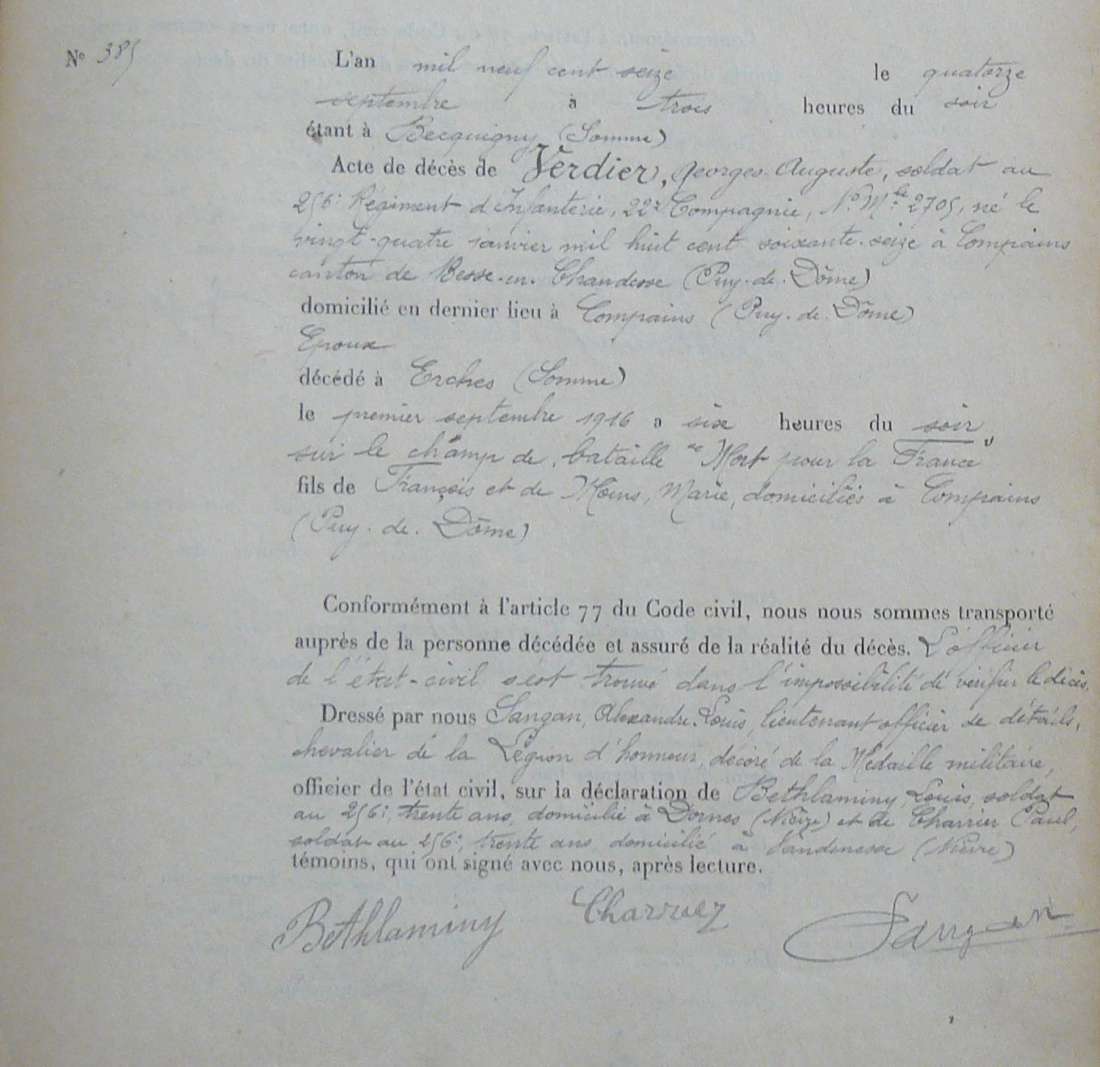 N° 385
L'an mil neuf cent seize le quatorze
septembre à trois heures du soir
étant à Becquigny (Somme)
Acte de décès de Verdier, Georges Auguste, soldat au
256e Régiment d'Infanterie, 22e Compagnie, N° Mle 2705, né le
vingt-quatre janvier mil huit cent soixante-seize à Compains
canton de Besse-en-Chandesse (Puy-de-Dôme)
domicilié en dernier lieu à Compains (Puy-de-Dôme)
Epoux
décédé à Erches (Somme)
le premier septembre 1916 à six heures du soir
sur le champ de bataille "Mort pour la France"
fils de François et de Moins, Marie, domiciliés à Compains
(Puy-de-Dôme)
Conformément à l'article 77 du Code civil, nous nous sommes transporté
auprès de la personne décédée et assuré de la réalité du décès. L'officier
de l'état-civil s'est trouvé dans l'impossibilité de vérifier le décès.
Dressé par nous Sangan, Alexandre Louis, lieutenant officier de détails,
chevalier de la Légion d'honneur, décoré de la Médaille militaire,
officier de l'état civil, sur la déclaration de Bethlaminy, Louis, soldat
au 256e, trente ans, domicilié à Dornes (Nièvre) et de Charrier Paul,
soldat au 256e, trente ans domicilié à Vandenesse (Nièvre)
témoins, qui ont signé avec nous, après lecture.
Bethlaminy Sangan